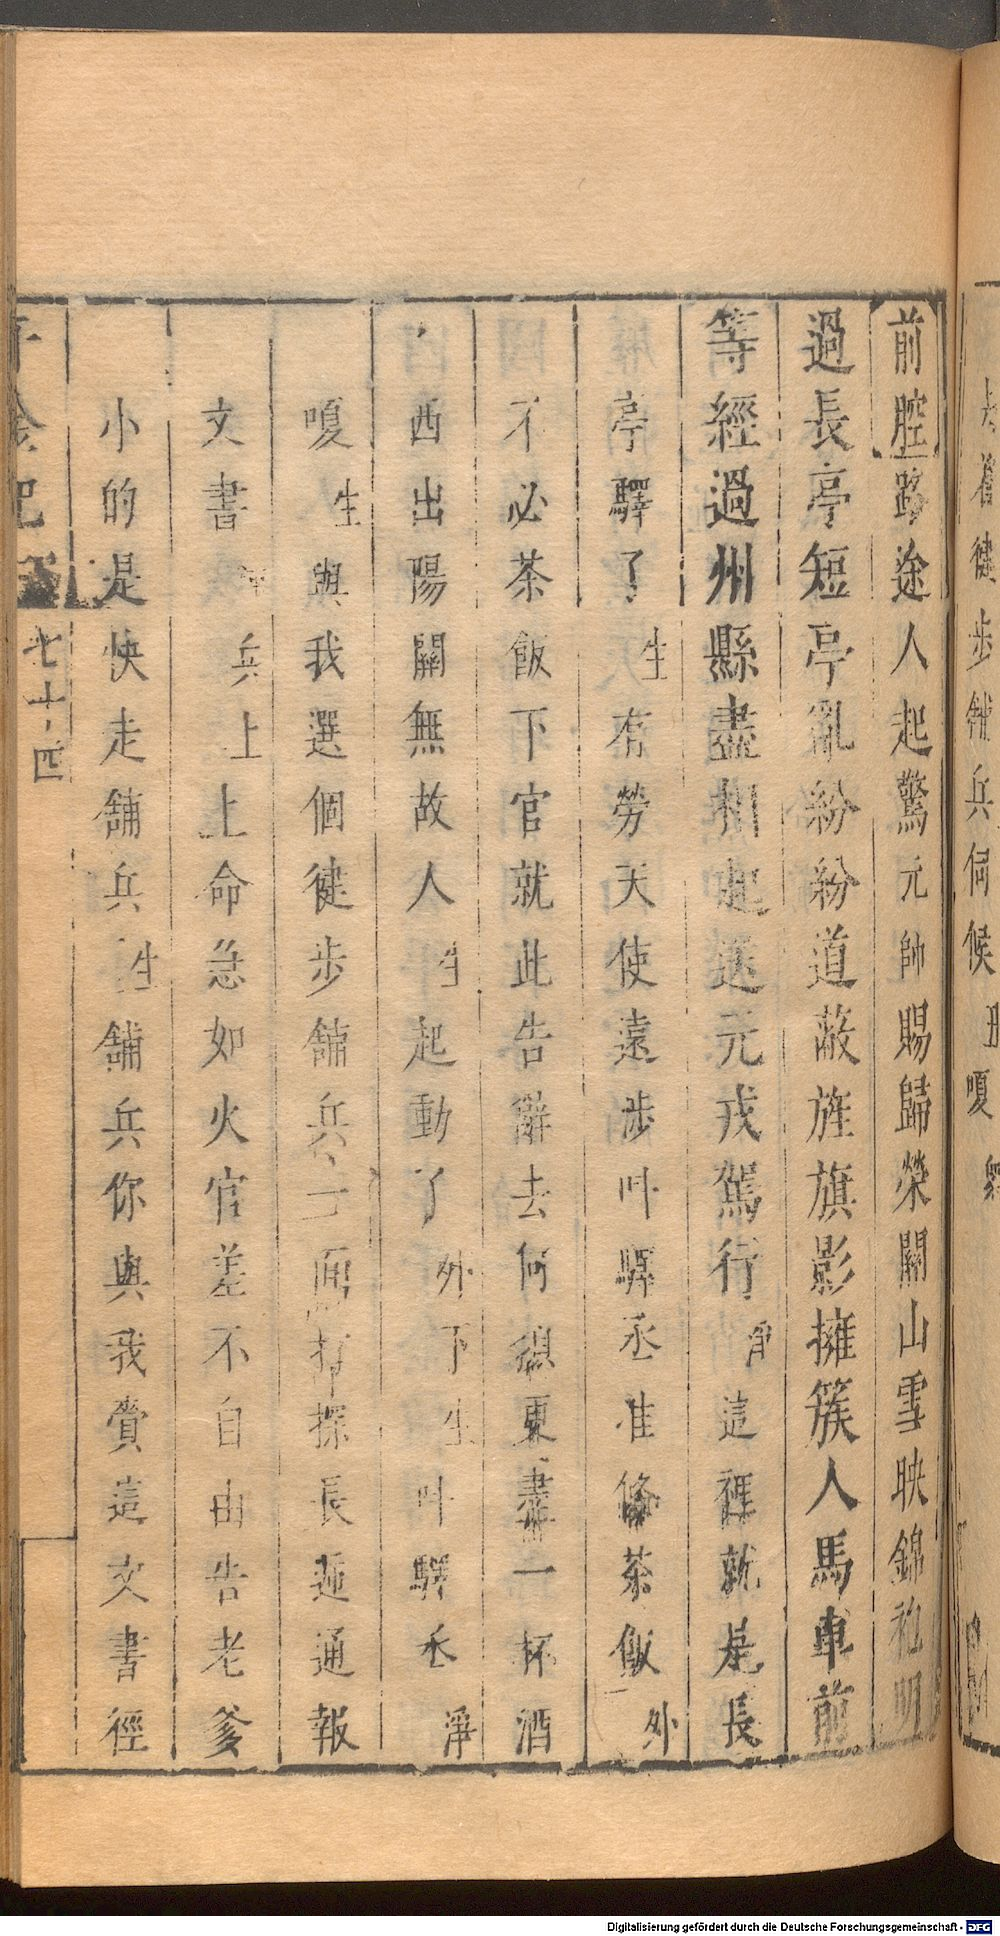 步舖兵伺候 丑 嗄
前腔 路途人起驚元帥賜歸榮關山雪映錦袍明
過長亭短亭亂紛紛道蔽旌旗影擁簇人馬車前
等經過州縣盡相起送元戎駕行 淨 這裡就是長
亭驛了 生 有勞天使遠涉叫驛丞准備茶飯 外
不必茶飯下官就此告辭去何須更盡一杯酒
西出陽關無故人 生 起動了 外 下 生 叫驛丞 淨
嗄 生 與我選個健步舖兵一面打探長 通報
文書 淨 兵上 上命急如火官差不自由告老爹
小的是快走舖兵 生 舖兵你與我賫這文書徑
千金記
七十四
Digitalisierung gefördert durch die Deutsche Forschungsgemeinschaft - DFG